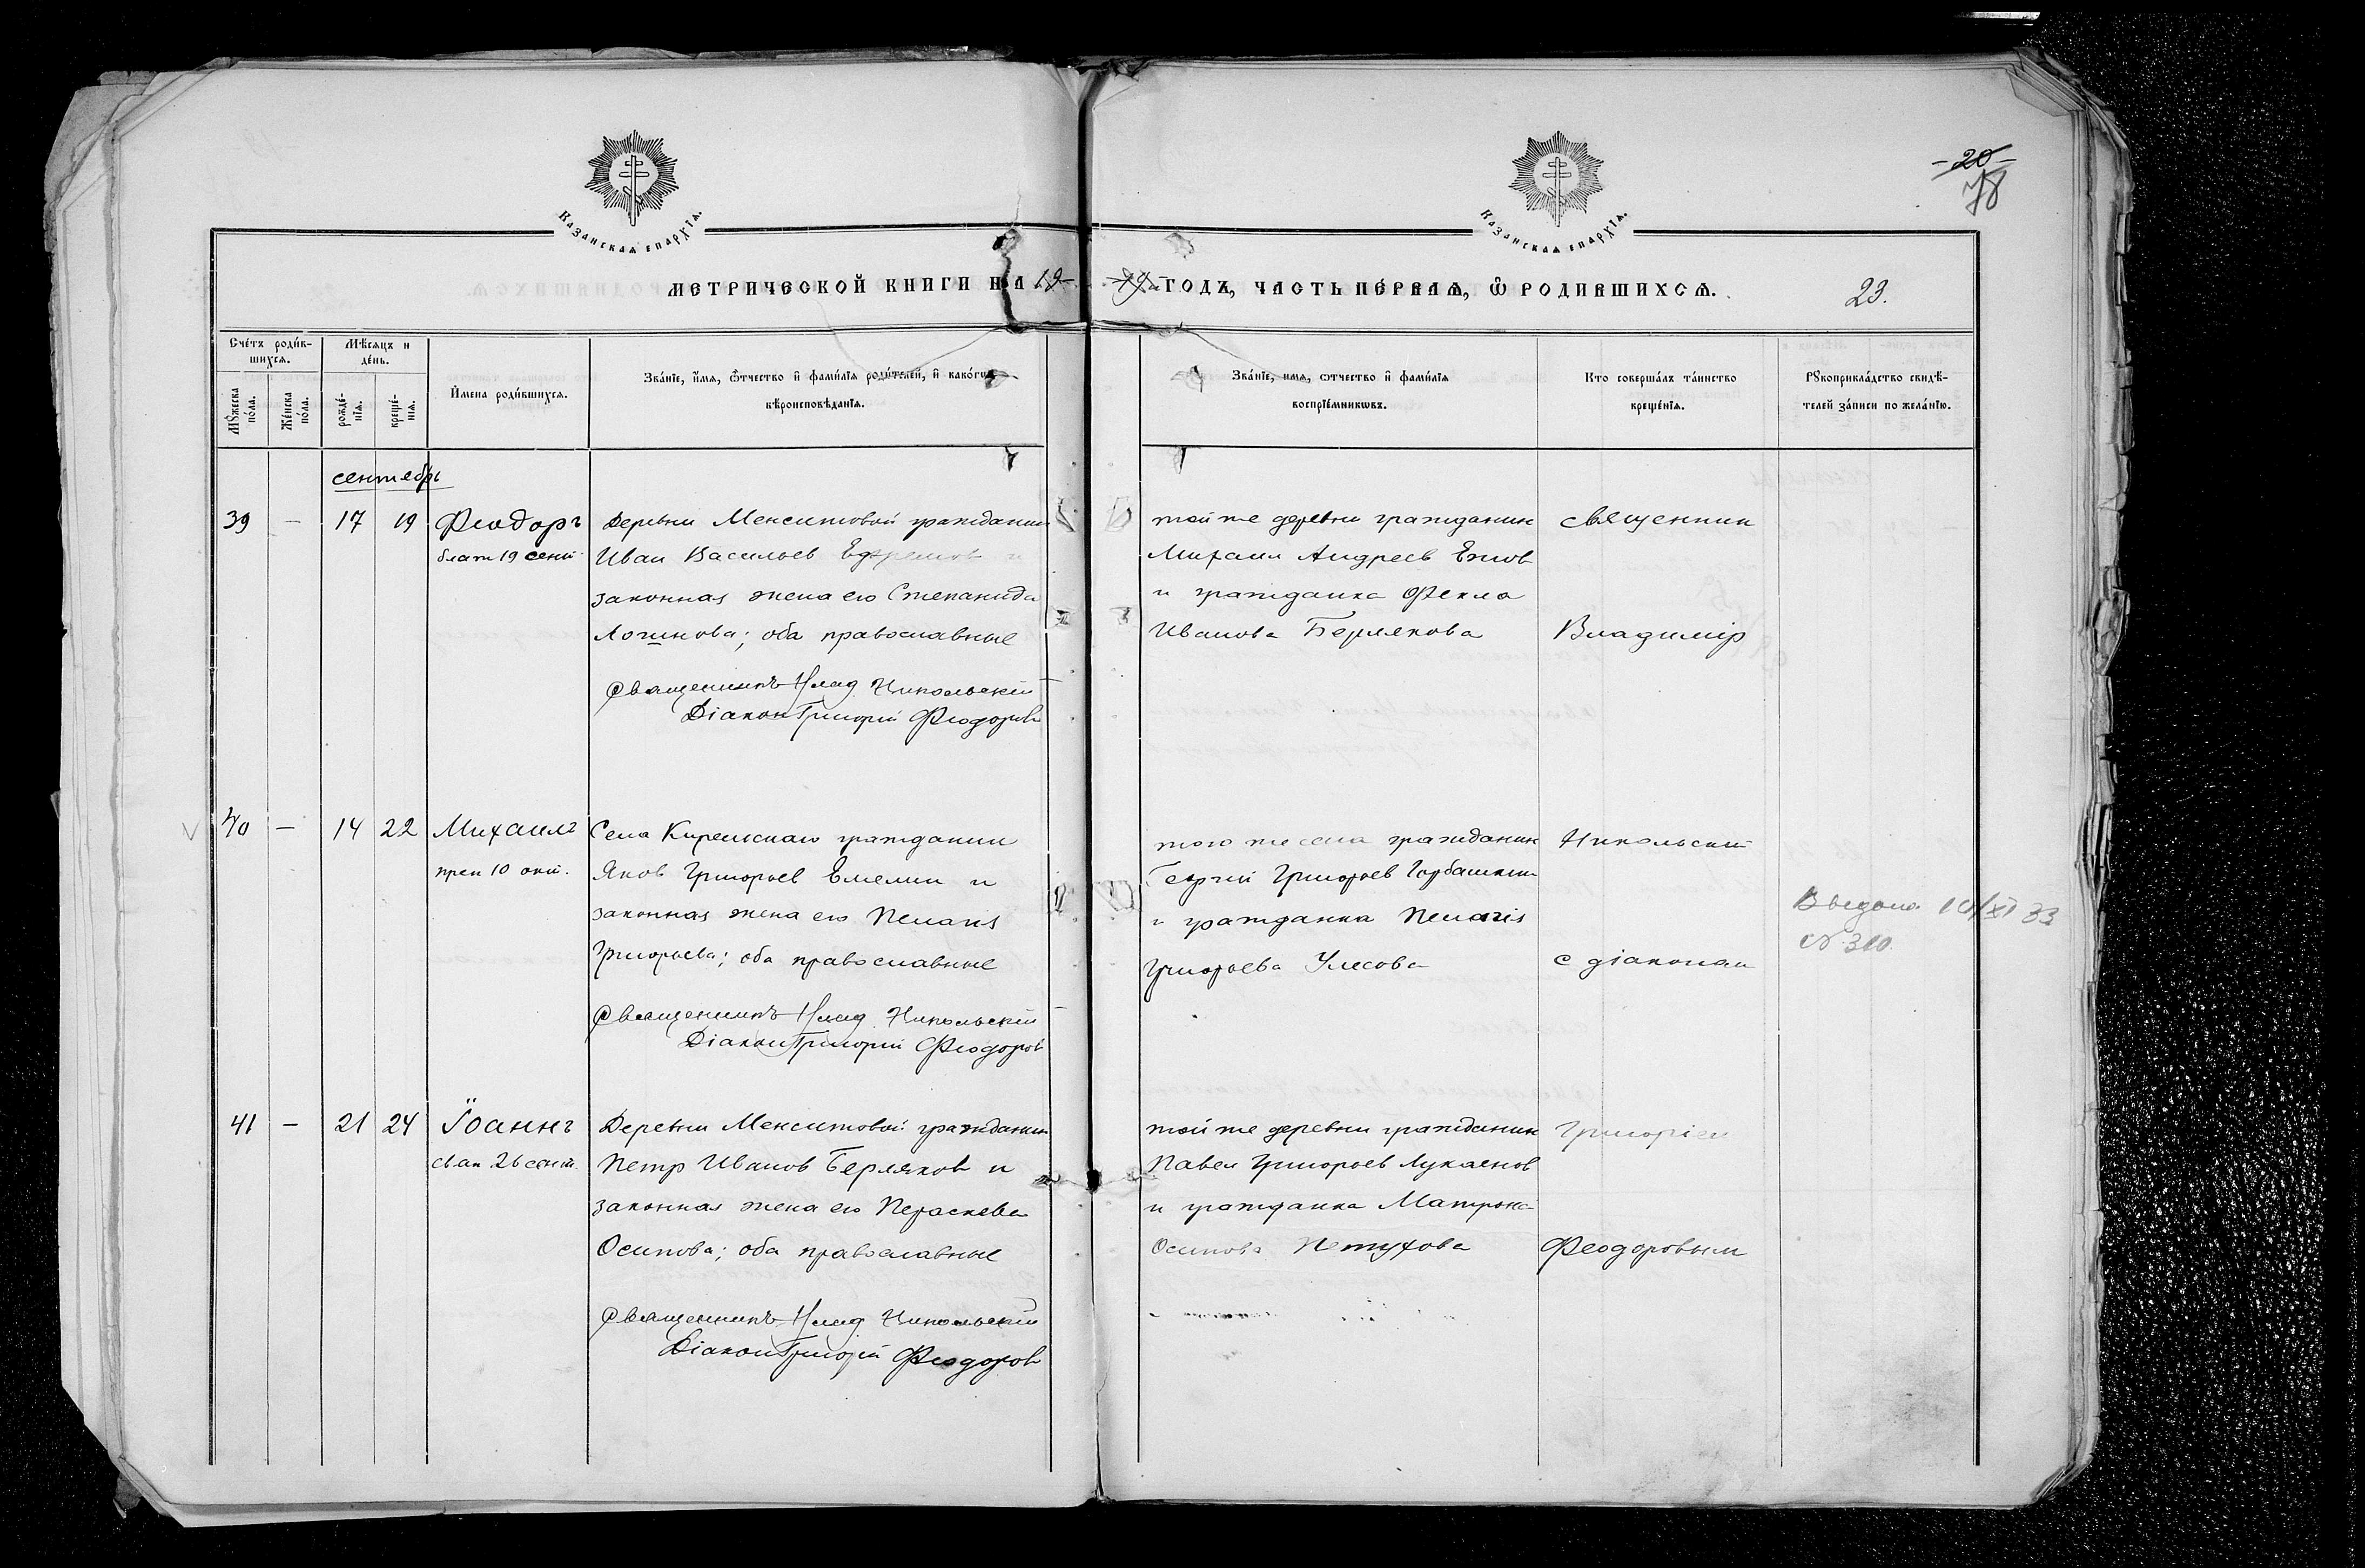 Казанская епархїѧ.
Казанская епархїѧ.
-20-
78
МЕТРИЧЕСКОЙ КНИГИ НА 19
ГОДЪ, ЧАСТЬ ПЕ́РВАѦ, Ѿ РОДИВШИХСѦ.
23.
Сче́тъ роди́в-
шихсѧ.
Мѣ́сѧцъ и
де́нь.
Мꙋ́жеска
по́ла.
Же́нска
по́ла.
рожде́-
нїѧ.
креще́-
нїѧ.
И҆мена роди́вшихсѧ.
Зва́нїе, и҆́мѧ, ѻ҆́тчество и҆ фами́лїѧ роди́телей, и҆ како́гѡ
вѣроисповѣ́данїѧ.
Зва́нїе, имѧ, отчество и҆ фами́лїѧ
воспрїе́мникѡвъ.
Кто соверша́лъ та́инство
креще́нїѧ.
Рꙋкоприкла́дство свидѣ́-
телей за́писи по жела́нїю.
сентябрь
39 — 17 19 Феодоръ
блат 19 сент
Деревни Менситовой гражданин
Иван Васильев Ефремов и
законная жена его Степанида
Логинова; оба православные
Священникъ Влад. Никольскій
Діакон Григорій Феодоров
той же деревни гражданин
Михаил Андреев Ежов
и гражданка Фекла
Иванова Берлякова
священник
Владимір
40 — 14 22 Михаилъ
преп 10 окт.
Села Кирельскаго гражданин
Яков Григорьев Емелин и
законная жена его Пелагія
Григорьева; оба православные
Священникъ Влад. Никольскій
Діакон Григорій Феодоров
того же села гражданин
Георгій Григорьев Горбашкин
и гражданка Пелагія
Григорьева Улесова
Никольский
с діаконом
Выдана 10/XI 33
N 310.
41 — 21 24 Іоаннъ
св ап. 26 сент.
Деревни Менситовой гражданин
Петр Иванов Берляков и
законная жена его Параскева
Осипова; оба православные
Священникъ Влад. Никольскій
Діакон Григорій Феодоров
той же деревни гражданин
Павел Григорьев Лукаенов
и гражданка Матрона
Осипова Петухова
Григоріем
Феодоровым